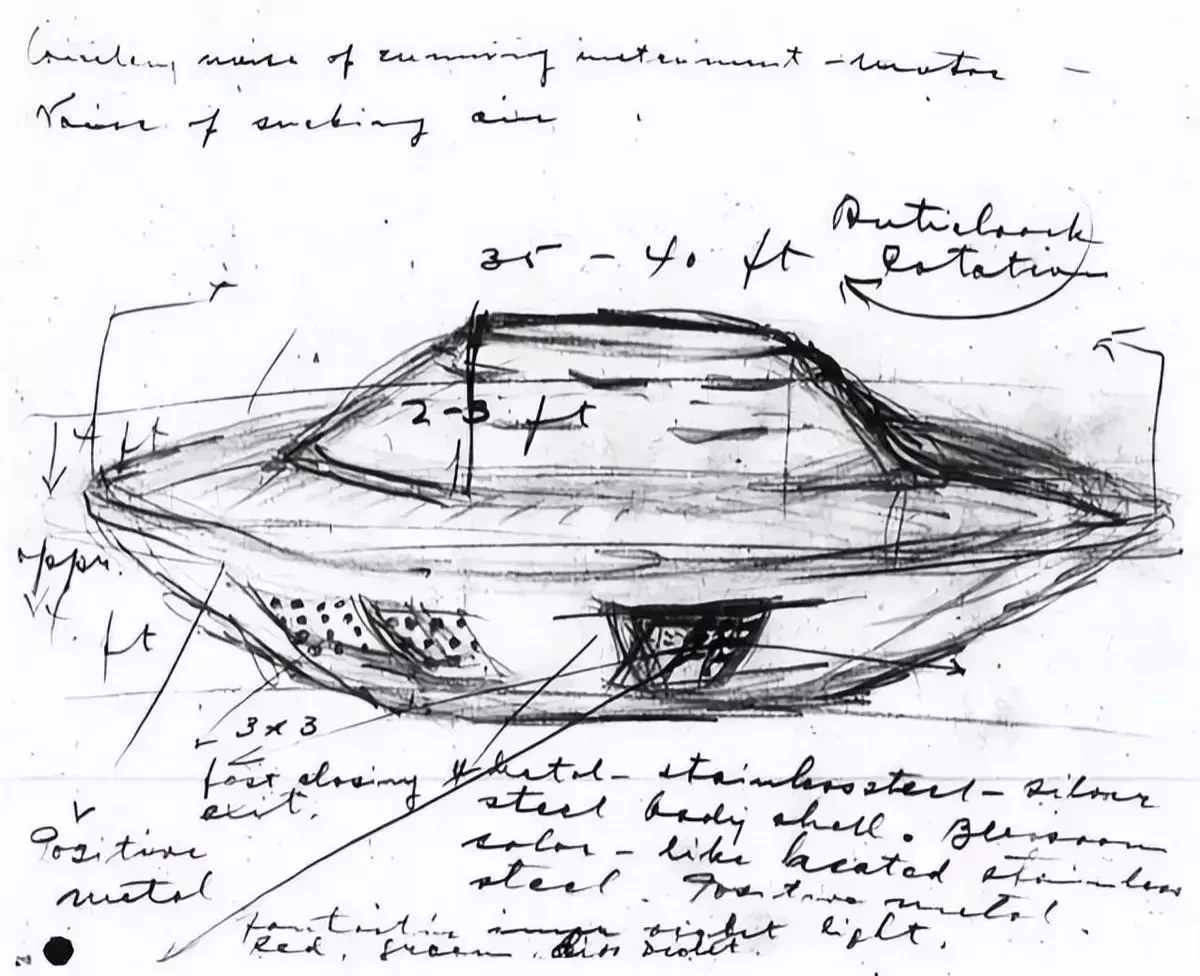 noise of running instrument - motor -
Noise of sucking air
35 - 40 ft
Anticlock
Rotation
2-3 ft
4 ft
appr.
4 ft
3 x 3
fast closing
exit.
Metal - stainlesssteel - silver
steel body shell.
color - like heated stainless
steel. Positive metal
Positive
metal
fantastic inner violet light.
Red, green, violet.